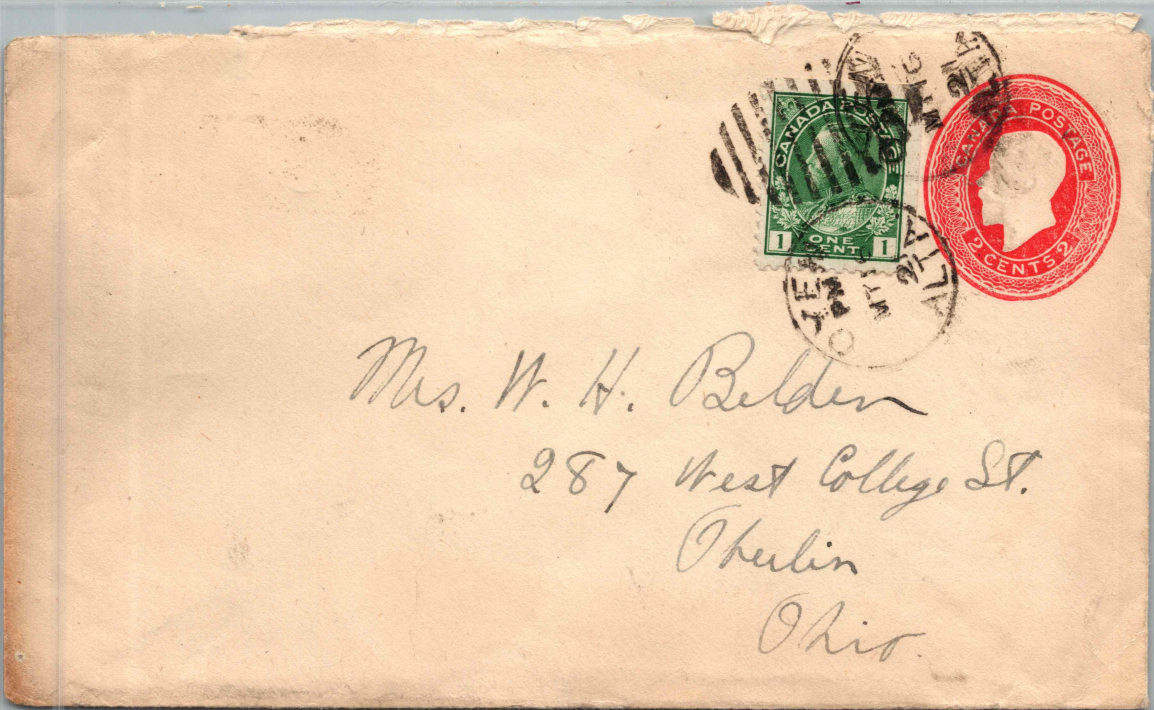 CANADA POSTAGE
1 ONE CENT 1
CANADA POSTAGE
2 CENTS 2
OYEN
PM
ALTA
Mrs. W. H. Belden
287 West College St.
Oberlin
Ohio.